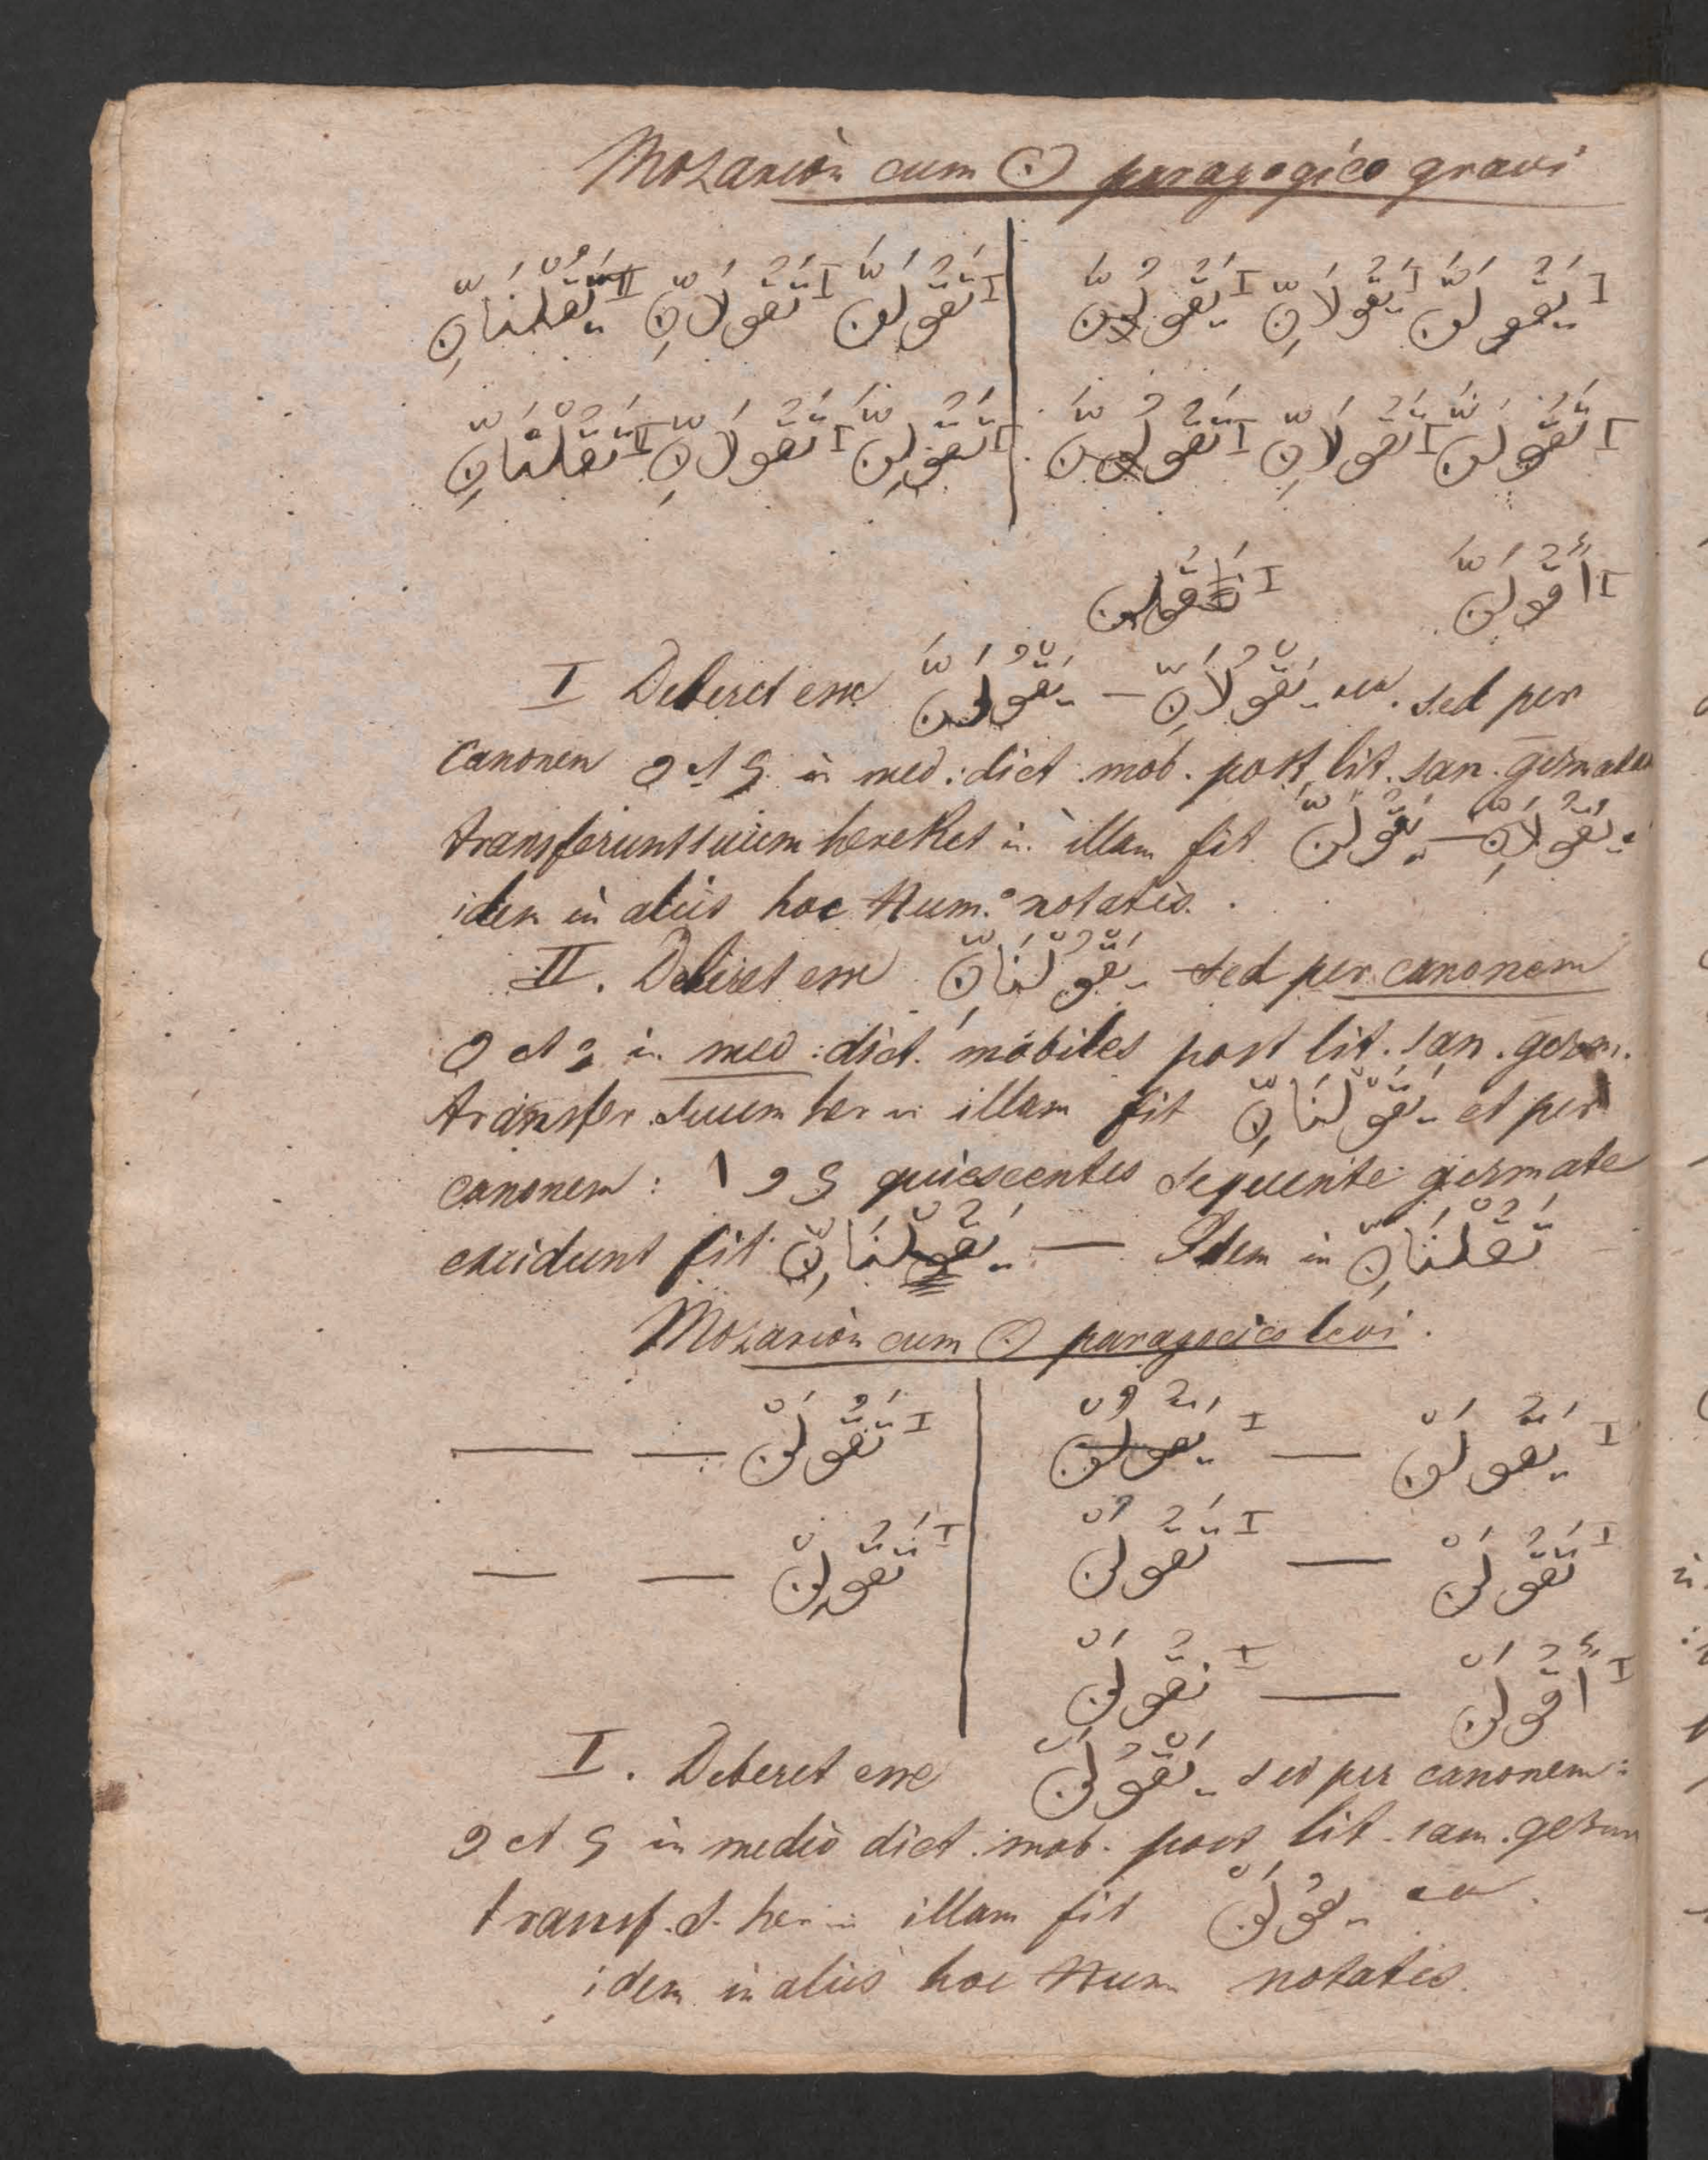 Mozariòn cum ن paragogico gravi
I يَقُولَنَّ I يَقُولَانِّ I يَقُولُنَّ | I تَقُولَنَّ I تَقُولَانِّ II يَقُلْنَانِّ
I تَقُولَنَّ I تَقُولَانِّ I تَقُولُنَّ | I تَقُولِنَّ I تَقُولَانِّ II تَقُلْنَانِّ
I أَقُولَنَّ I نَقُولَنَّ
I Deberet esse يَقْوُلَنَّ — يَقْوُلَانِّ sed per
canonem و et ي in med: dict. mob. post lit. san. gezmatam
transferunt suum hereket in illam fit يَقُولَنَّ — يَقُولَانِّ
idem in aliis hoc Num.o notatis.
II. Deberet esse يَقْوُلْنَانِّ sed per canonem
و et ي in med: dict. mobiles post lit. san. gezm.
transfer. suum her in illam fit يَقُوْلْنَانِّ et per
canonem: ا و ي quiescentes sequente gezmate
excidunt fit يَقُلْنَانِّ — Idem in تَقُلْنَانِّ
Mozariòn cum ن paragogico levi.
I يَقُولَنْ — I يَقُولُنْ | I تَقُولَنْ — —
I تَقُولَنْ — I تَقُولُنْ | I تَقُولِنْ — —
I أَقُولَنْ — I نَقُولَنْ
I. Deberet esse يَقْوُلَنْ sed per canonem:
و et ي in medio dict. mob. post lit. san. gezm
transf. s. her in illam fit يَقُولَنْ
idem in aliis hoc Num notatis.